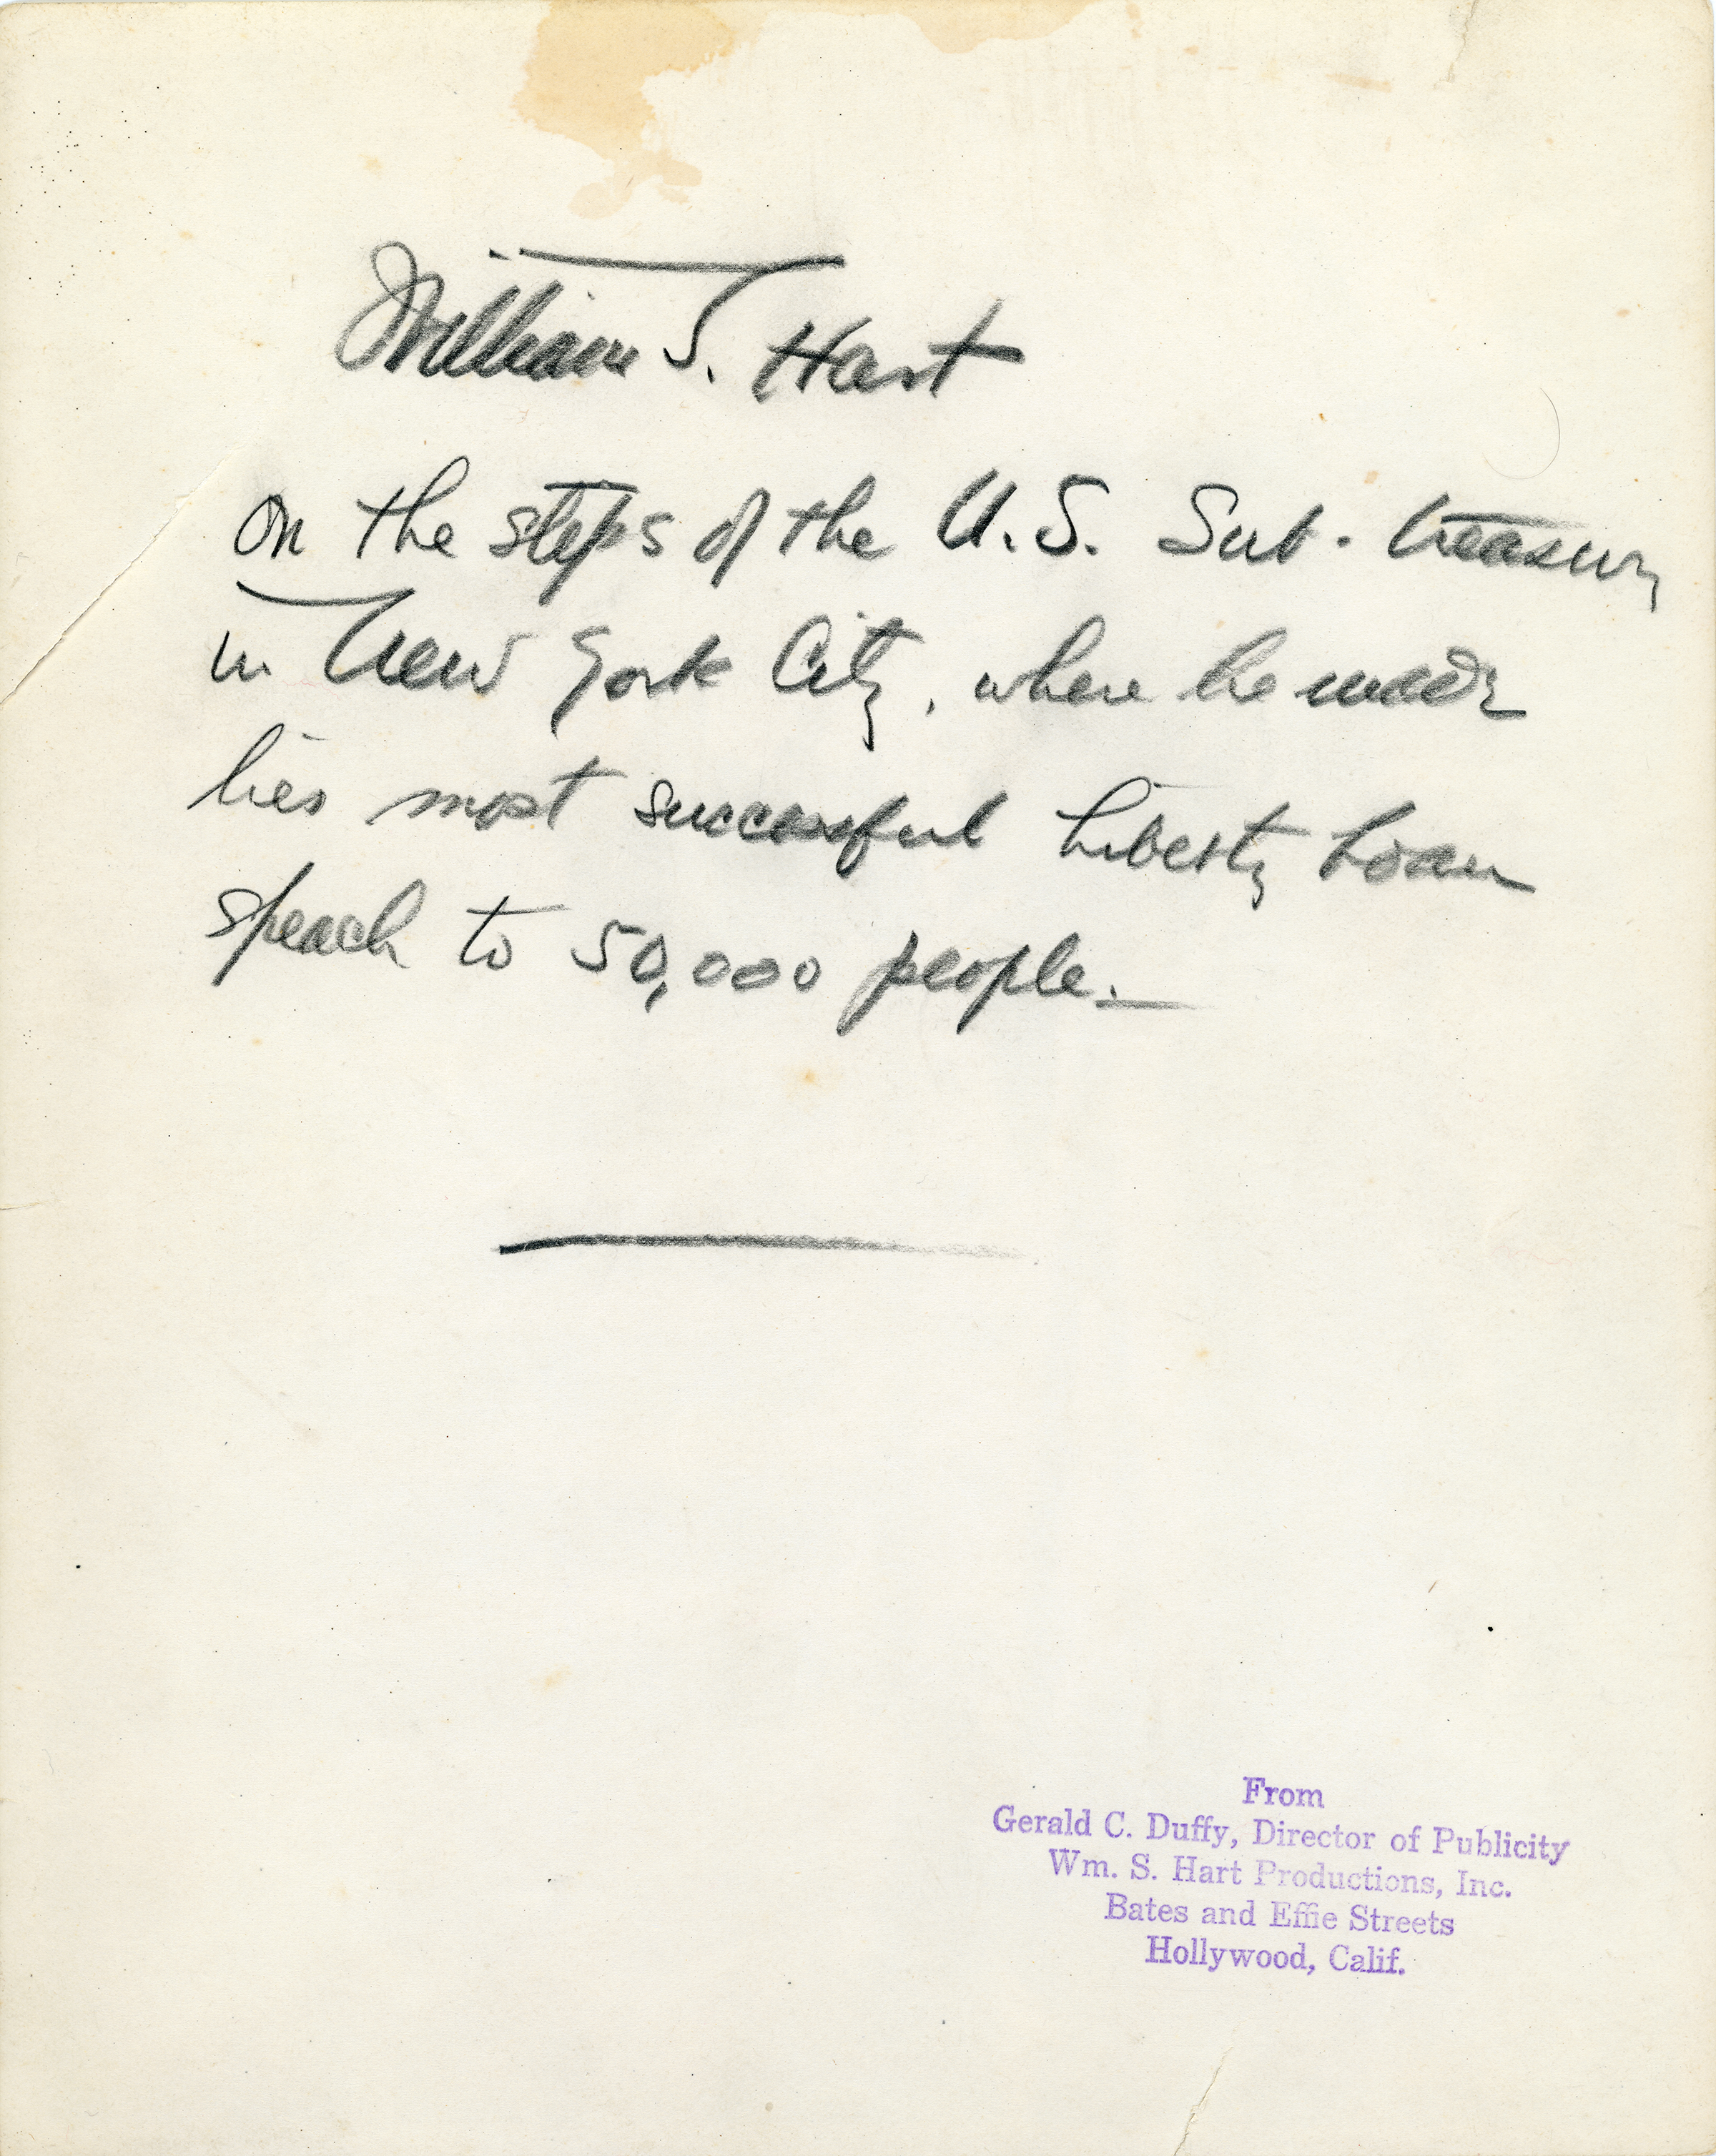 William S. Hart
on the steps of the U.S. Sub-treasury
in New York City, where he made
his most successful Liberty Loan
speach to 50,000 people.
From
Gerald C. Duffy, Director of Publicity
Wm. S. Hart Productions, Inc.
Bates and Effie Streets
Hollywood, Calif.